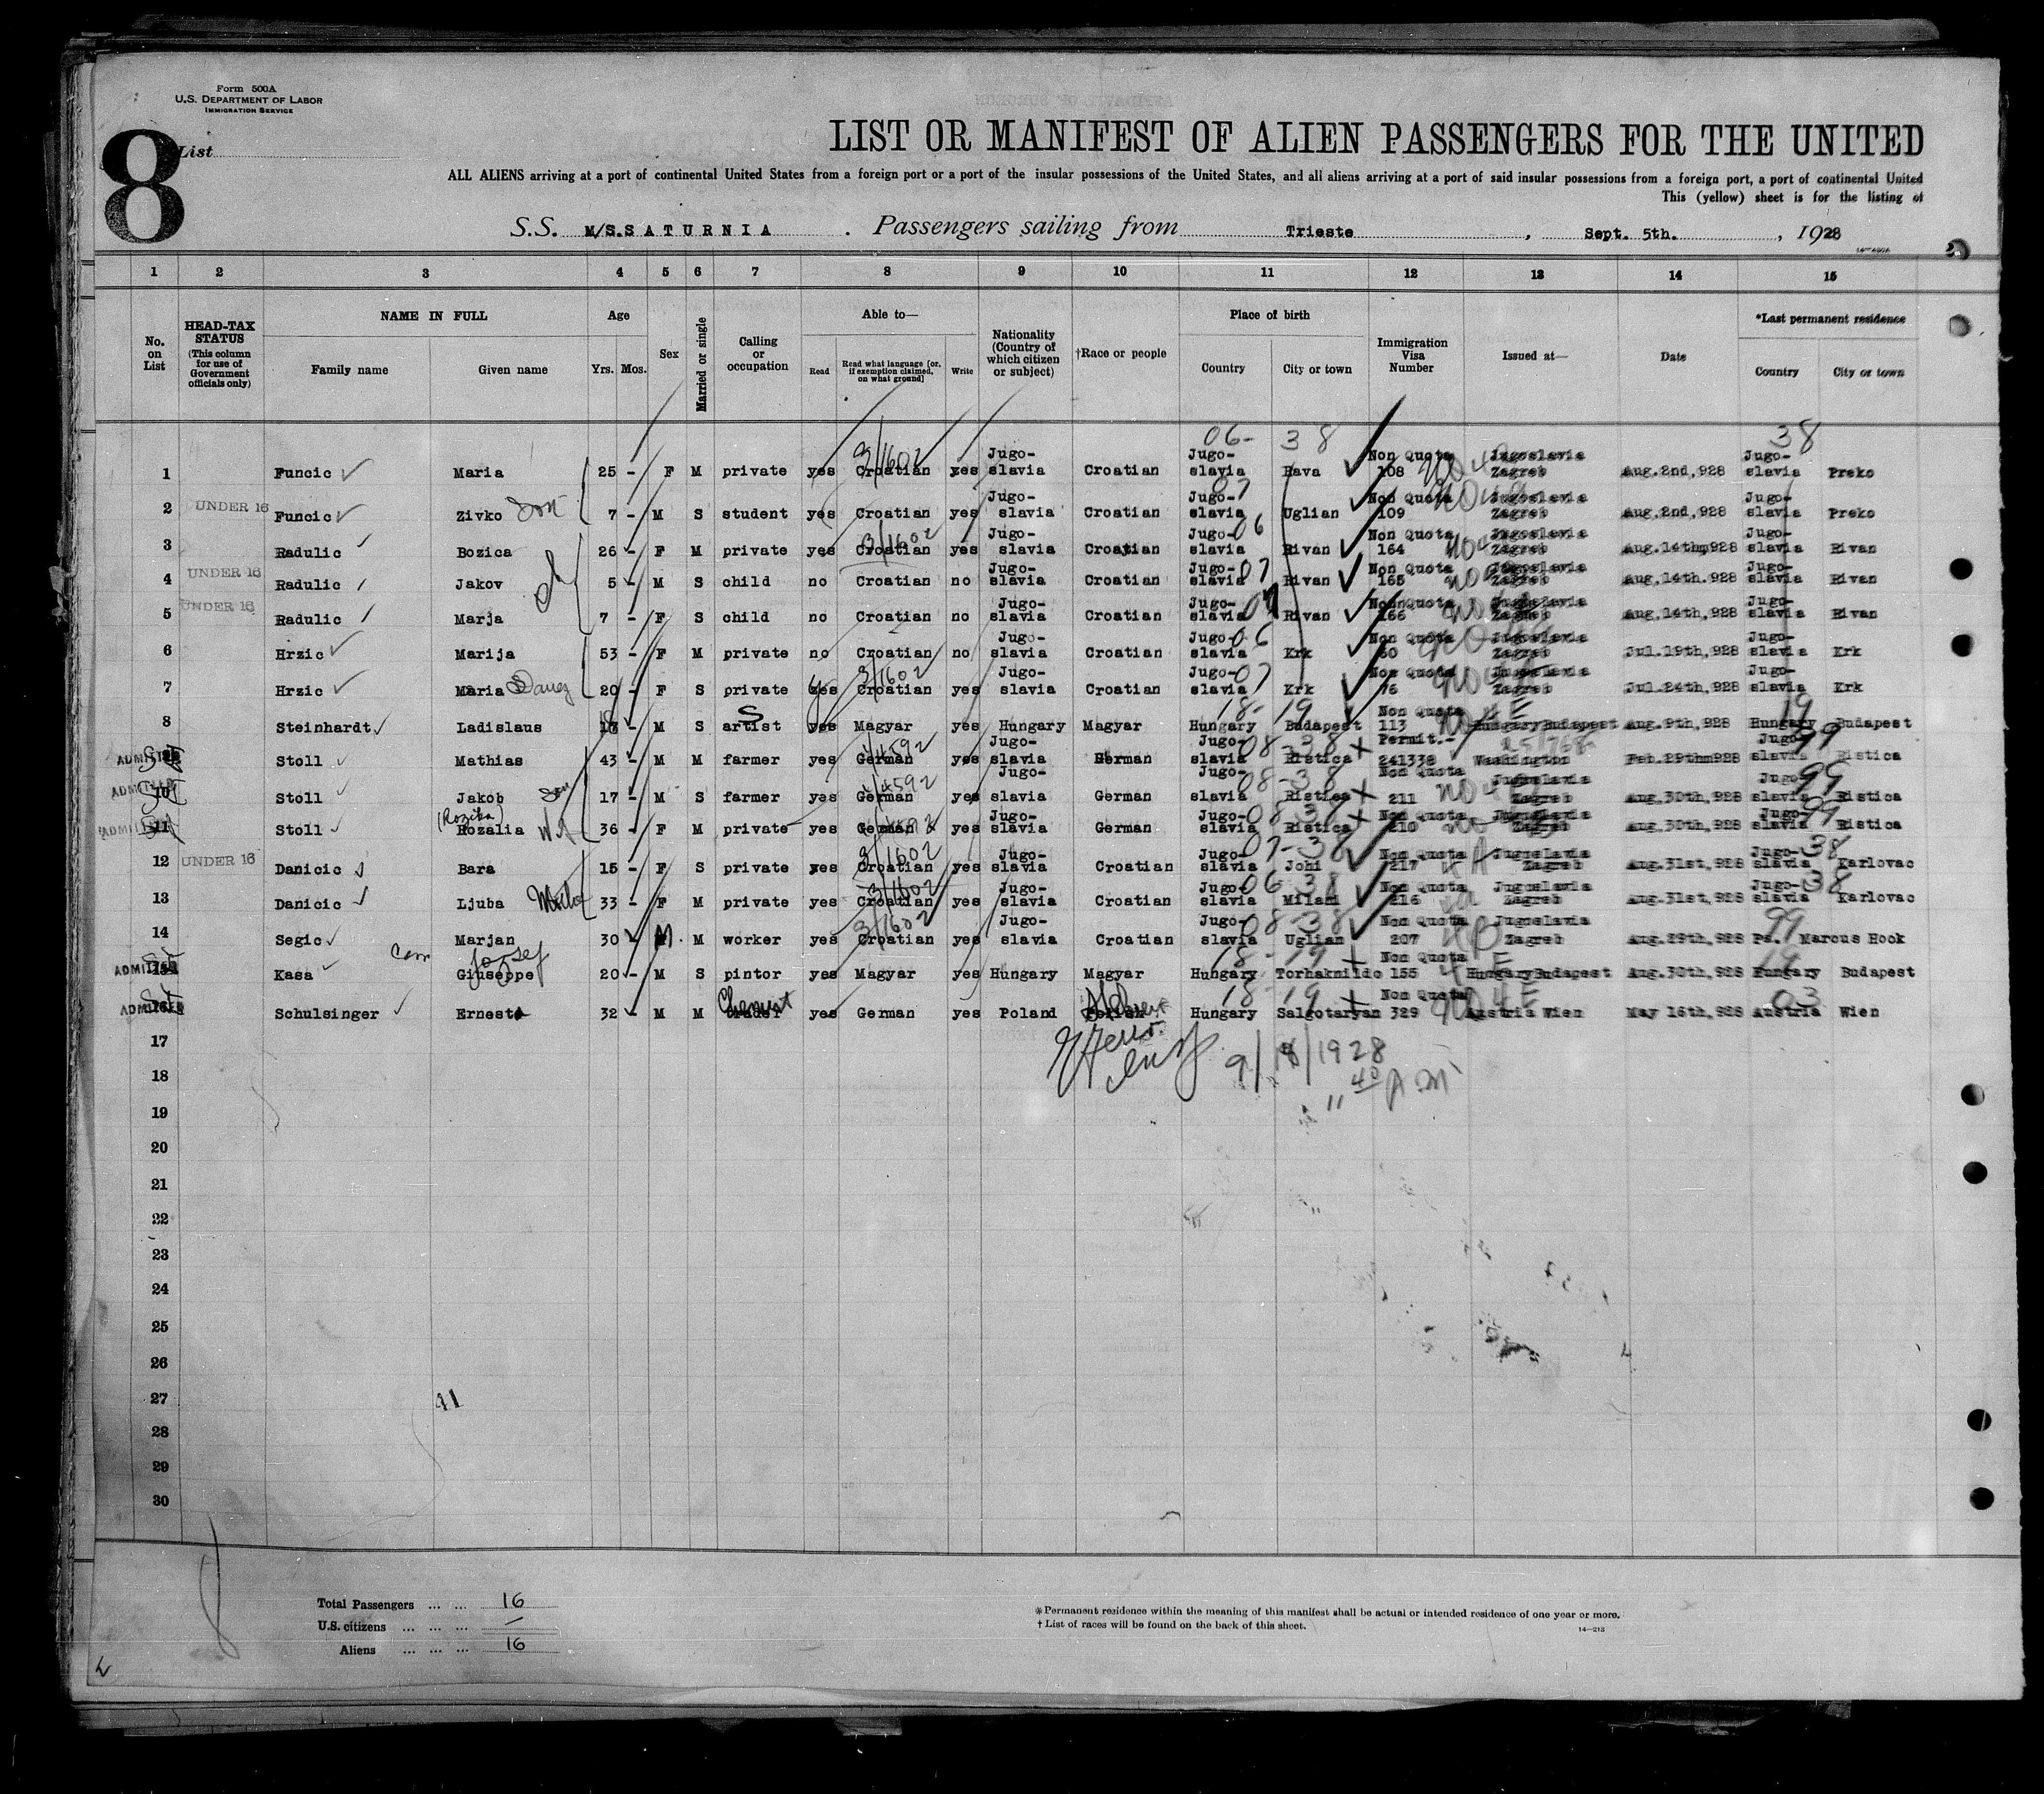 Form 500A
U.S. DEPARTMENT OF LABOR
IMMIGRATION SERVICE
8 List
LIST OR MANIFEST OF ALIEN PASSENGERS FOR THE UNITED
ALL ALIENS arriving at a port of continental United States from a foreign port or a port of the insular possessions of the United States, and all aliens arriving at a port of said insular possessions from a foreign port, a port of continental United
This (yellow) sheet is for the listing of
S.S. M/S.SATURNIA . Passengers sailing from Trieste , Sept. 5th. , 1928
1 2 3 4 5 6 7 8 9 10 11 12 13 14 15
No. on List
HEAD-TAX STATUS (This column for use of Government officials only)
NAME IN FULL
Family name Given name
Age
Yrs. Mos.
Sex
Married or single
Calling or occupation
Able to—
Read Read what language [or, if exemption claimed, on what ground] Write
Nationality (Country of which citizen or subject)
†Race or people
Place of birth
Country City or town
Immigration Visa Number
Issued at—
Date
*Last permanent residence
Country City or town
06- 38 38
1 Funcic Maria 25 - F M private yes Croatian 3/1602 yes Jugo-slavia Croatian Jugo-slavia Rava Non Quota 108 Jugoslavia Zagreb Aug.2nd,928 Jugo-slavia Preko
2 UNDER 16 Funcic Zivko son 7 - M S student yes Croatian yes Jugo-slavia Croatian Jugo-slavia 07 Uglian Non Quota 109 Jugoslavia Zagreb Aug.2nd,928 Jugo-slavia Preko
3 Radulic Bozica 26 - F M private yes Croatian 3/1602 yes Jugo-slavia Croatian Jugo-slavia 06 Rivan Non Quota 164 Jugoslavia Zagreb Aug.14thm928 Jugo-slavia Rivan
4 UNDER 16 Radulic Jakov 5 - M S child no Croatian no Jugo-slavia Croatian Jugo-slavia 07 Rivan Non Quota 165 Jugoslavia Zagreb Aug.14th.928 Jugo-slavia Rivan
5 UNDER 16 Radulic Marja 7 - F S child no Croatian no Jugo-slavia Croatian Jugo-slavia 07 Rivan Non Quota 166 Jugoslavia Zagreb Aug.14th,928 Jugo-slavia Rivan
6 Hrzic Marija 53 - F M private no Croatian no Jugo-slavia Croatian Jugo-slavia 06 Krk Non Quota 60 Jugoslavia Zagreb Jul.19th,928 Jugo-slavia Krk
7 Hrzic Maria 20 - F S private yes Croatian 3/1602 yes Jugo-slavia Croatian Jugo-slavia 07 Krk Non Quota 76 Jugoslavia Zagreb Jul.24th,928 Jugo-slavia Krk
8 Steinhardt Ladislaus - M S artist yes Magyar yes Hungary Magyar Hungary 18-19 Budapest Non Quota 113 Hungary Budapest Aug.9th,928 Hungary 19 Budapest
ADMITTED Stoll Mathias 43 - M M farmer yes German 4/4592 yes Jugo-slavia German Jugo-slavia 08-38 Ristica Permit.- 241338 Washington Feb.29thm928 Jugo-slavia 99 Ristica
ADMITTED 10 Stoll Jakob son 17 - M S farmer yes German 4/4592 yes Jugo-slavia German Jugo-slavia 08-38 Ristica Non Quota 211 Jugoslavia Zagreb Aug.30th,928 Jugo-slavia 99 Ristica
ADMITTED 11 Stoll Rozalia (Rozika) Wf 36 - F M private yes German yes Jugo-slavia German Jugo-slavia 08-38 Ristica Non Quota 210 Jugoslavia Zagreb Aug.30th,928 Jugo-slavia 99 Ristica
12 UNDER 16 Danicic Bara 15 - F S private yes Croatian 3/1602 yes Jugo-slavia Croatian Jugo-slavia 07-38 Johi Non Quota 217 Jugoslavia Zagreb Aug.31st,928 Jugo-slavia 38 Karlovac
13 Danicic Ljuba 33 - F M private yes Croatian 3/1602 yes Jugo-slavia Croatian Jugo-slavia 06-38 Milani Non Quota 216 Jugoslavia Zagreb Aug.31st,928 Jugo-slavia 38 Karlovac
14 Segic Marjan 30 - M M worker yes Croatian 3/1602 yes Jugo-slavia Croatian Jugo-slavia 08-38 Uglian Non Quota 207 4B Jugoslavia Zagreb Aug.29th,928 Pa. Marcus Hook
ADMITTED 15 Kasa Giuseppe Josef 20 - M S pintor yes Magyar yes Hungary Magyar Hungary 18-19 Torhaknildo Non Quota 155 Hungary Budapest Aug.30th,928 Hungary 19 Budapest
ADMITTED 16 Schulsinger Ernest 32 - M M yes German yes Poland Hebrew Hungary 18-19 Salgotaryan Non Quota 329 Austria Wien May 16th,928 Austria 03 Wien
17 9/18/1928
18 11 40 A.M
19
20
21
22
23
24
25
26
27
28
29
30
Total Passengers ... ... 16
U.S. citizens ... ... ... —
Aliens ... ... ... 16
*Permanent residence within the meaning of this manifest shall be actual or intended residence of one year or more.
†List of races will be found on the back of this sheet.
14—213